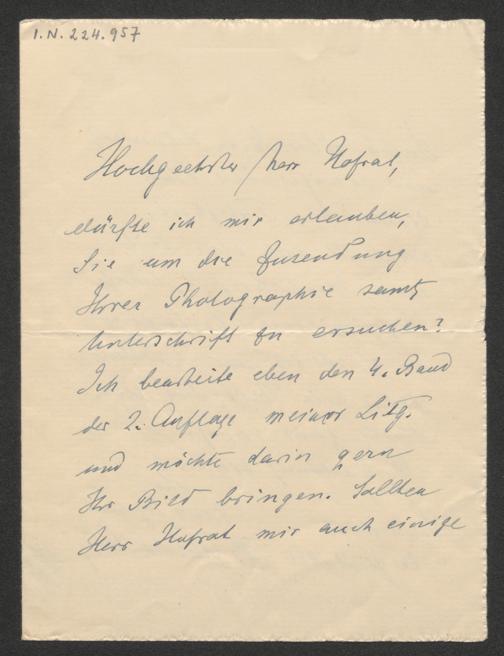 I.N. 224.957
Hochgeehrter Herr Hofrat,
dürfte ich mir erlauben,
Sie um die Zusendung
Ihrer Photographie samt
Unterschrift zu ersuchen?
Ich bearbeite eben den 4. Band
der 2. Auflage meiner Litg.
und möchte darin gern
Ihr Bild bringen. Sollten
Herr Hofrat mir auch einige